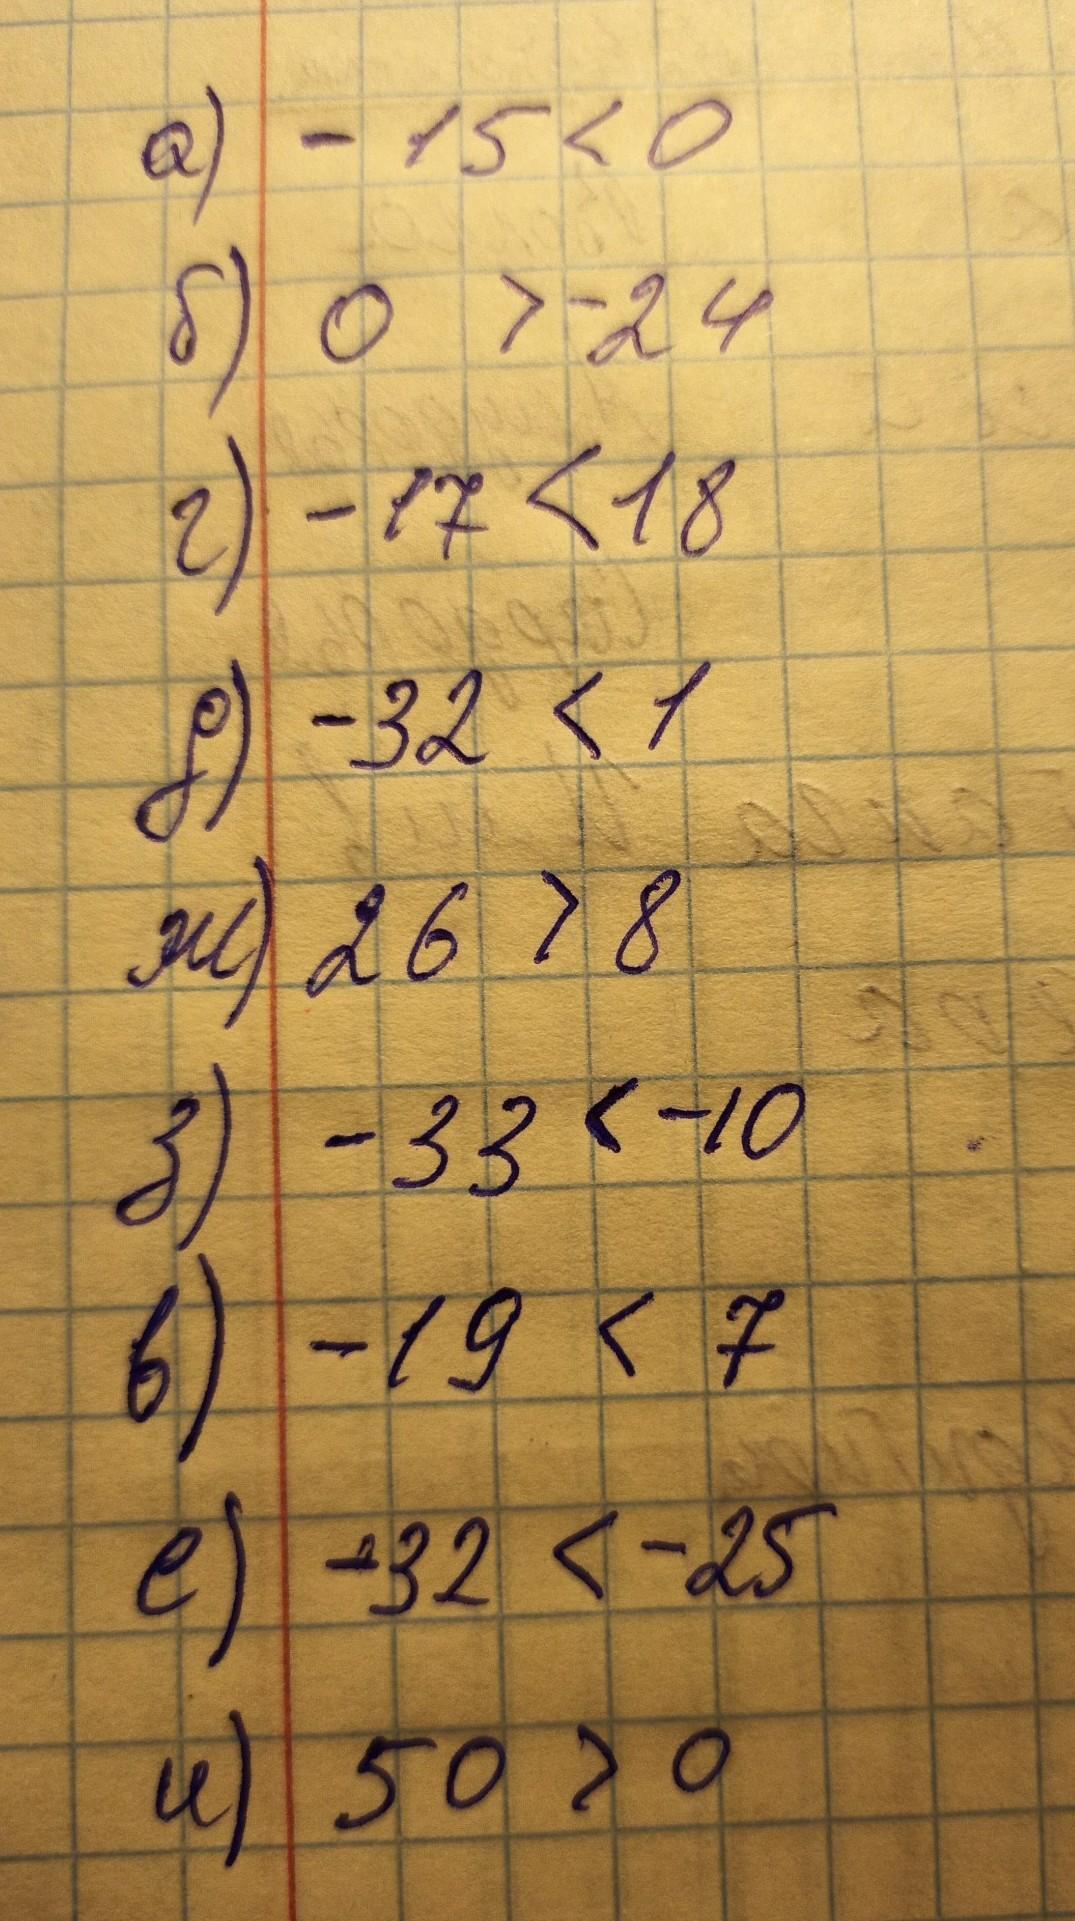 а) -15 < 0
б) 0 > -24
г) -17 < 18
д) -32 < 1
ж) 26 > 8
з) -33 < -10
в) -19 < 7
е) -32 < -25
и) 50 > 0